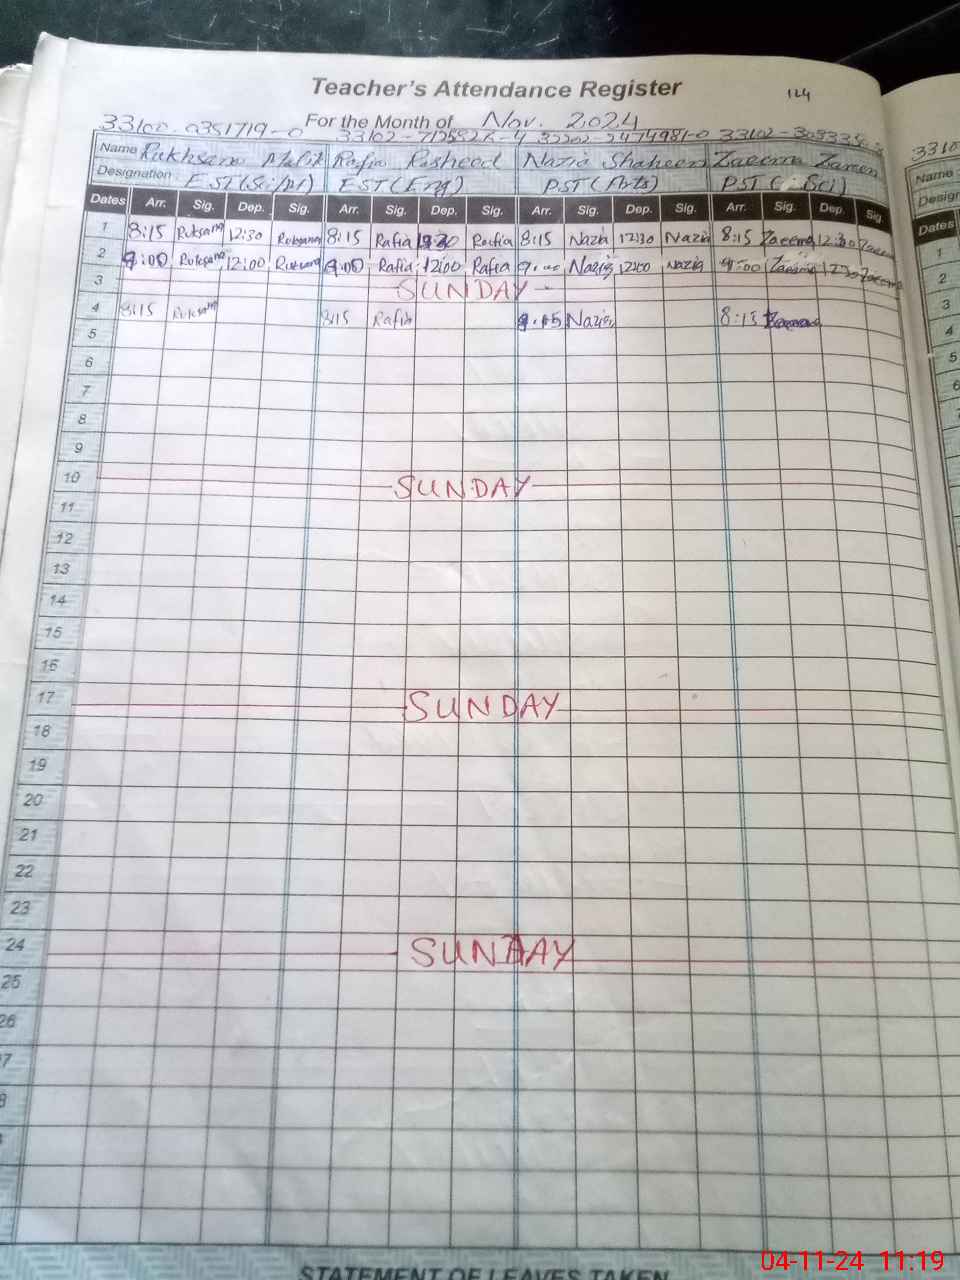 Teacher's Attendance Register
124
For the Month of Nov. 2024
33100-0351719-0 33102-7125827-4 33202-2474981-0 33102-
Name Rukhsana Malik Rafia Rasheed Nazia Shaheen Zaeema Zareen
Designation EST(Sci/pt) EST(Eng) PST(Arts) PST(Sci)
Dates Arr. Sig. Dep. Sig. Arr. Sig. Dep. Sig. Arr. Sig. Dep. Sig. Arr. Sig. Dep. Sig.
1 8:15 Ruksana 12:30 Ruksana 8:15 Rafia 12:30 Rafia 8:15 Nazia 12:30 Nazia 8:15 Zaeema 12:30 Zaeema
2 9:00 Ruksana 12:00 Ruksana 9:00 Rafia 12:00 Rafia 9:00 Nazia 12:00 Nazia 9:00 Zaeema Zaeema
3 SUNDAY
4 8:15 Ruksana 8:15 Rafia 8:15 Nazia 8:15 Zaeema
5
6
7
8
9
10 SUNDAY
11
12
13
14
15
16
17 SUNDAY
18
19
20
21
22
23
24 SUNDAY
25
26
STATEMENT OF LEAVES TAKEN
3310
Name :
Design
Dates
1
2
3
4
5
6
7
04-11-24 11:19